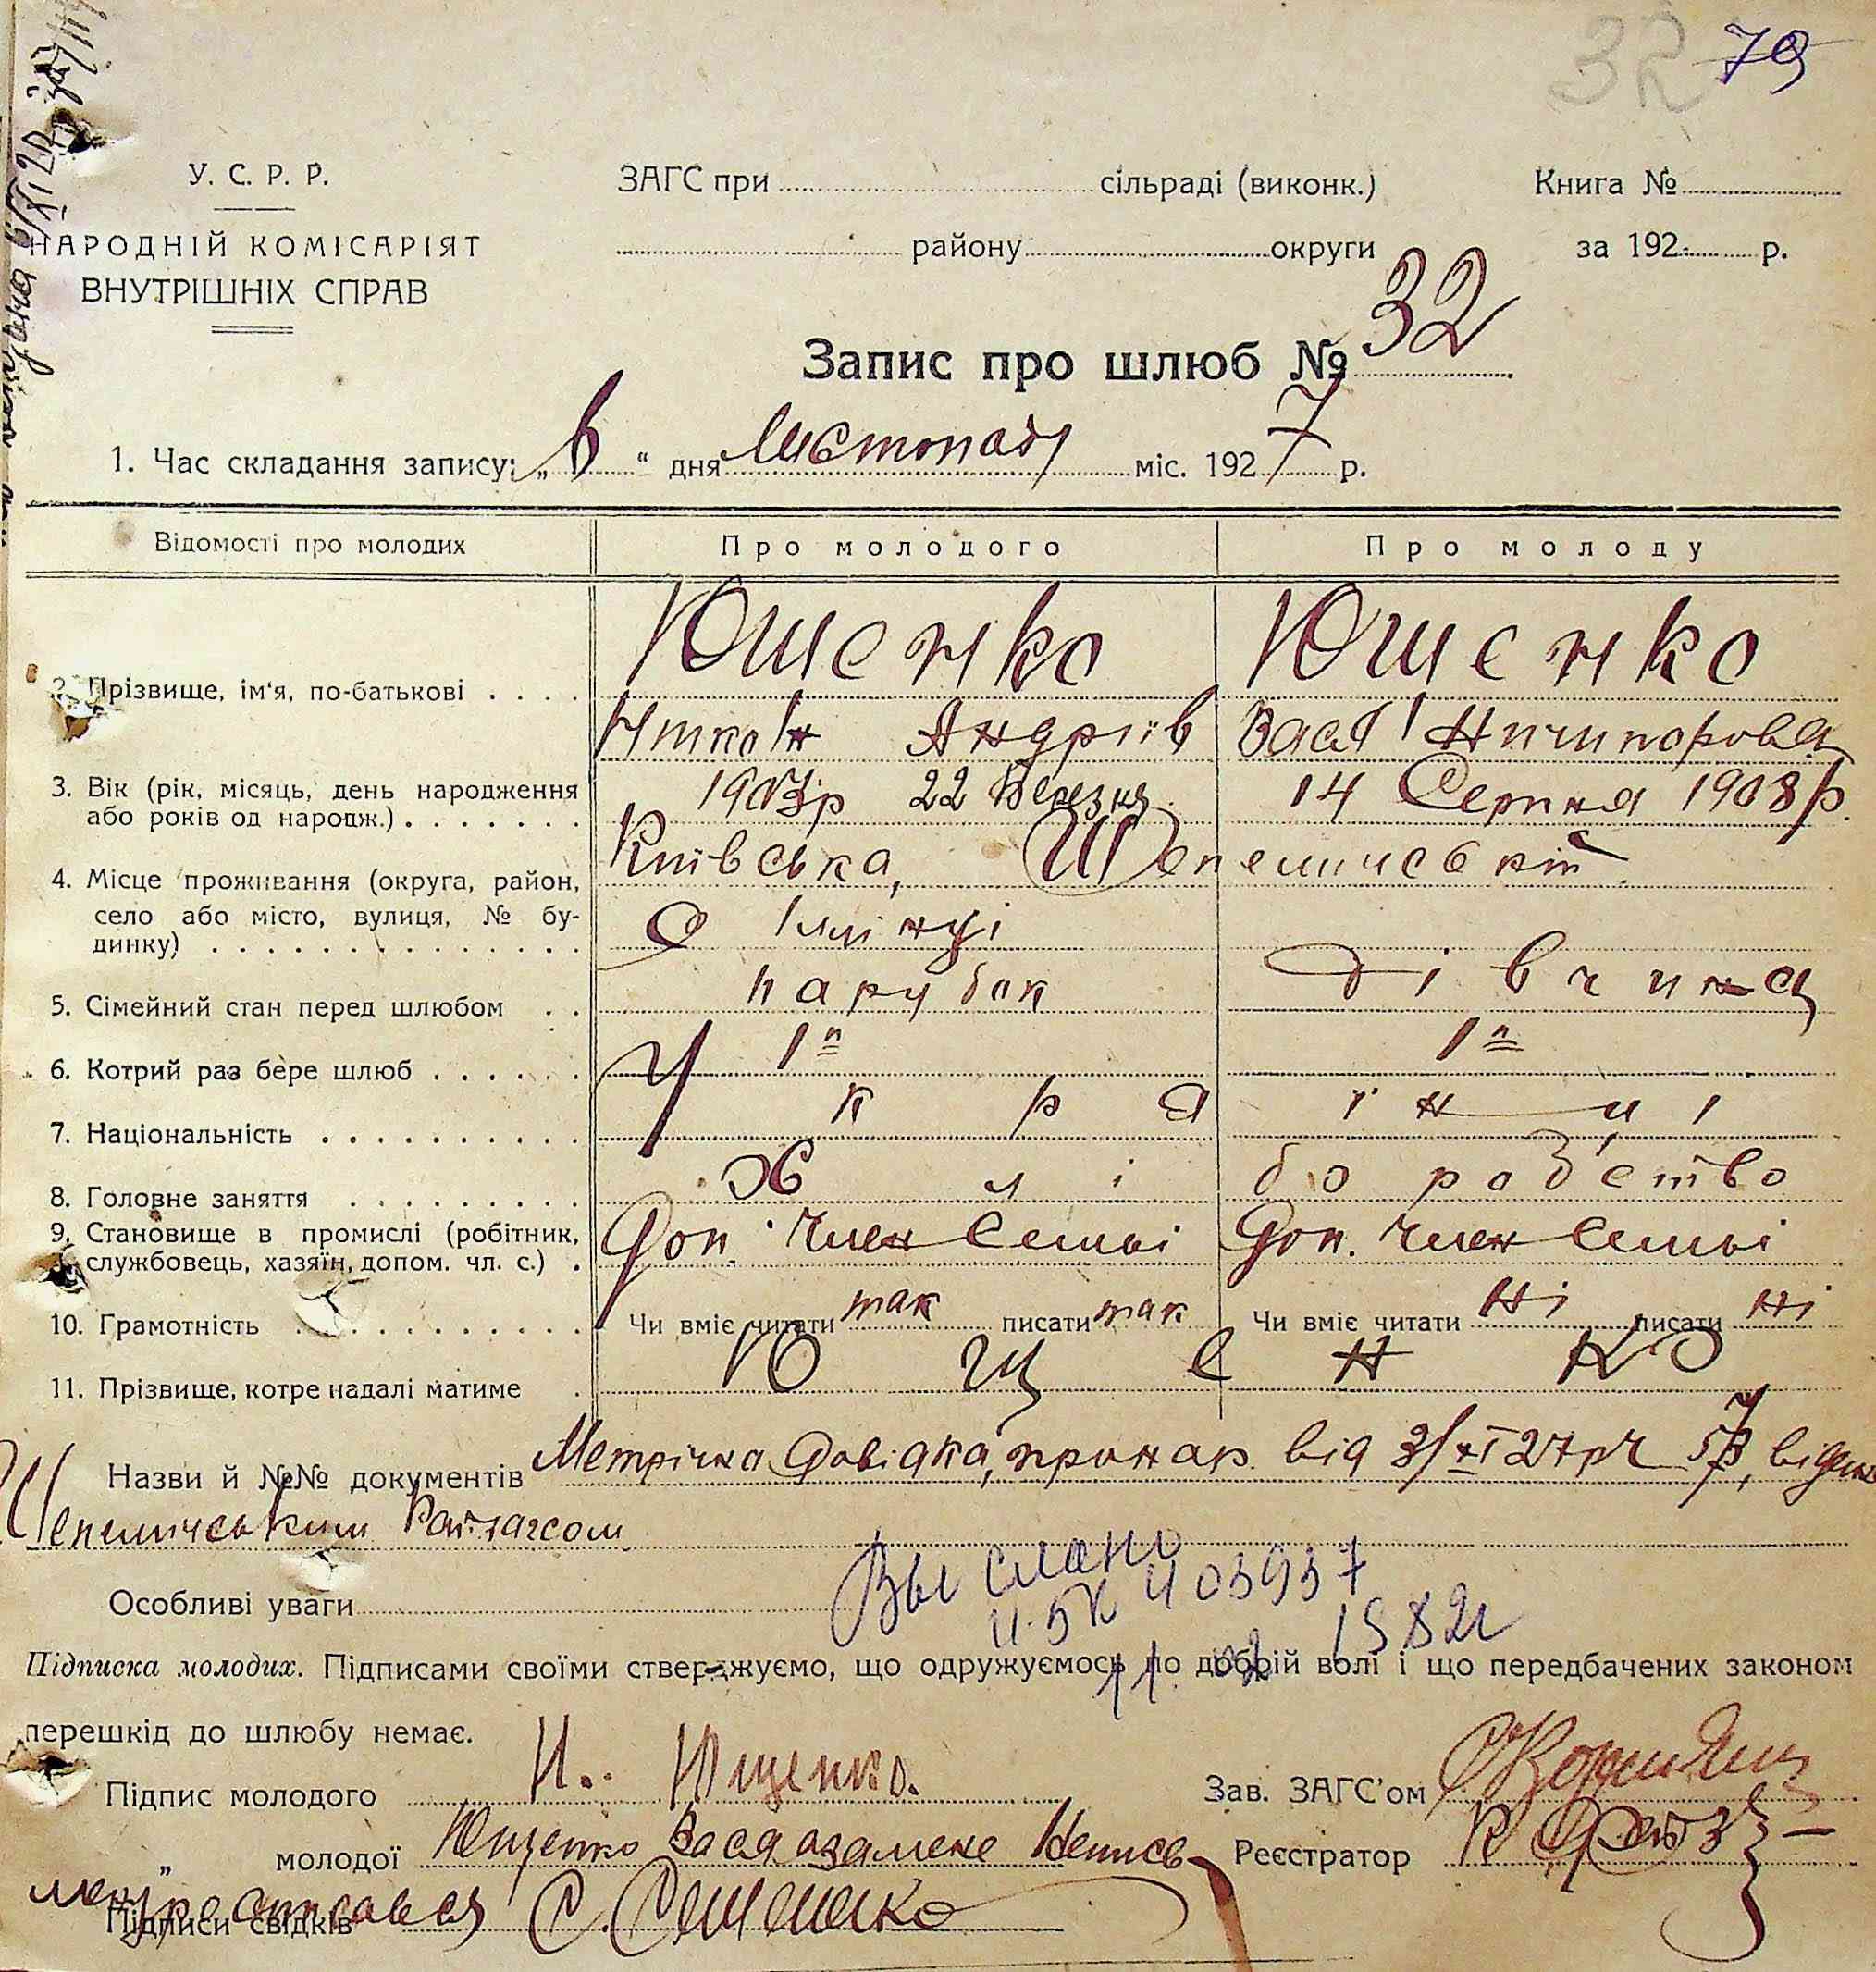 32 79
У. С. Р. Р.
НАРОДНІЙ КОМІСАРІЯТ
ВНУТРІШНІХ СПРАВ
ЗАГС при сільраді (виконк.)
району округи
Книга №
за 192 р.
Запис про шлюб № 32
1. Час складання запису: „ 6 “ дня Листопаду міс. 1927 р.
Відомості про молодих Про молодого Про молоду
2. Прізвище, ім‘я, по-батькові Ющенко Ющенко
Андріїв Вася Ничипорова
3. Вік (рік, місяць, день народження 1903р 22 Березня 14 Серпня 1908р.
або років од народж.)
4. Місце проживання (округа, район, Київська, Шепеличськ
село або місто, вулиця, № бу- с Іллінці
динку)
5. Сімейний стан перед шлюбом парубок дівчина
6. Котрий раз бере шлюб 1й 1й
7. Національність Українці
8. Головне заняття Хліборобство
9. Становище в промислі (робітник, Доп. член семьі Доп. член семьі
службовець, хазяїн, допом. чл. с.)
10. Грамотність Чи вміє читати так писати так Чи вміє читати ні писати ні
11. Прізвище, котре надалі матиме Ющенко
Назви й №№ документів Метрична Довідка, про нар. від 3/XI 27р
Шепелическим Райзагсом
Особливі уваги Выслано
403937
1982г
Підписка молодих. Підписами своїми стверджуємо, що одружуємось по добрій волі і що передбачених законом
перешкід до шлюбу немає.
Підпис молодого Н. Ющенко.
Зав. ЗАГС’ом
„ молодої Ющенко Вася азамене Неписв
Реєстратор
менну росписався
Підписи свідків